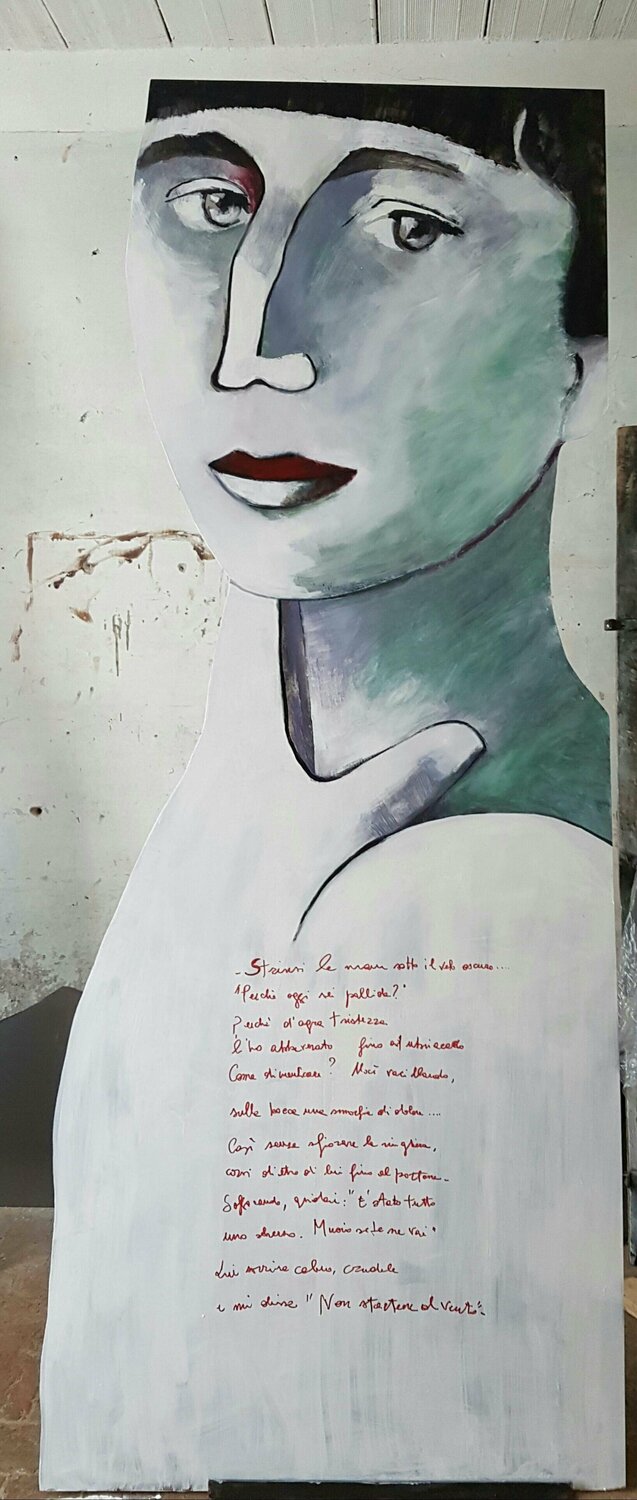 - Strinsi le mani sotto il velo oscuro....
"Perché oggi sei pallida?"
Perché d'agra tristezza
l'ho abbeverato fino ad ubriacarlo
Come dimenticare? Uscì vacillando,
sulla bocca una smorfia di dolore....
Corsi senza sfiorare la ringhiera,
corsi dietro di lui fino al portone.
Soffocando, gridai: "È stato tutto
uno scherzo. Muoio se te ne vai"
Lui sorrise calmo, crudele
e mi disse "Non startene al vento".